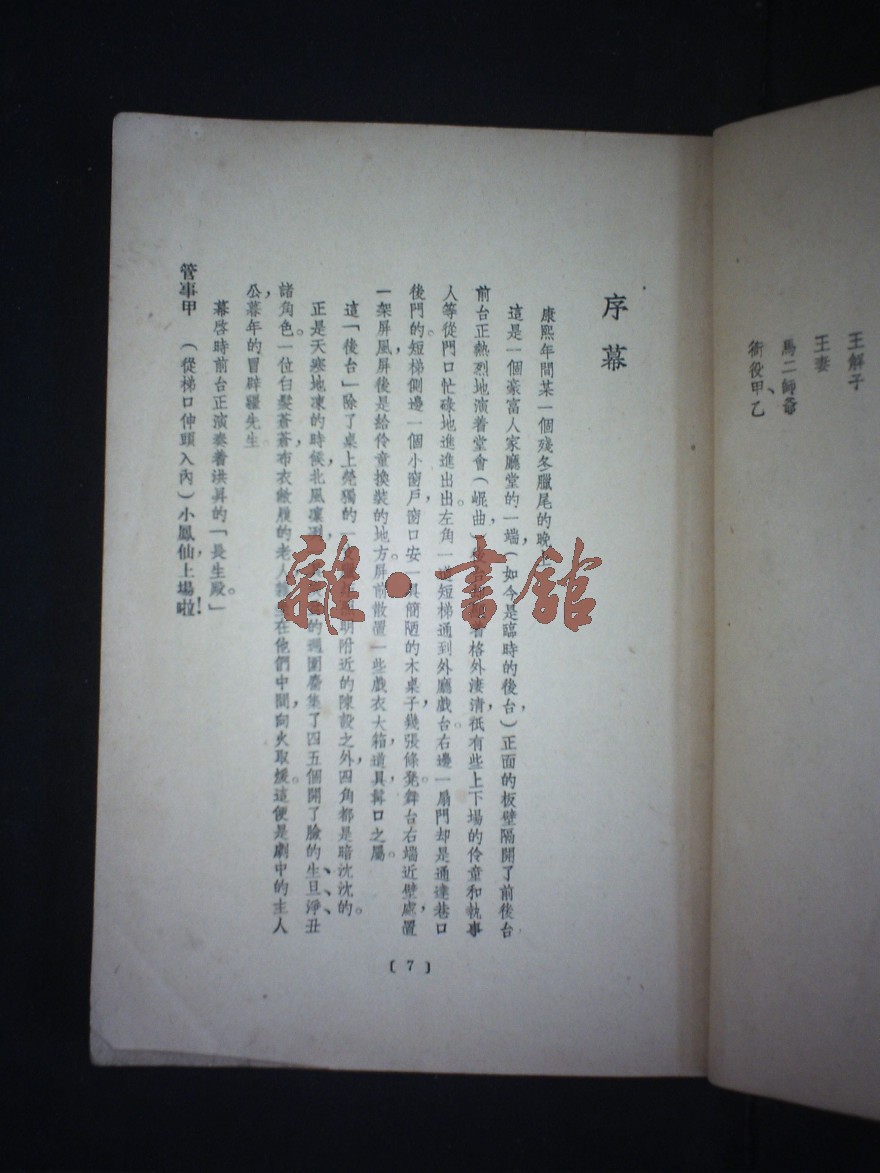 王解子
王妻
馬二師爺
衙役甲、乙
序幕
康熙年間某一個殘冬臘尾的晚上
這是一個豪富人家廳堂的一端(如今是臨時的後台)正面的板壁隔開了前後台,
前台正熱烈地演着堂會(崐曲),着格外淒清,祇有些上下場的伶童和執事
人等從門口忙碌地進進出出。左角一道短梯通到外廳戲台。右邊一扇門却是通達巷口
後門的。短梯側邊一個小窗戶,窗口安一具簡陋的木桌子,幾張條凳。舞台右端近壁處置
一架屏風,屏後是給伶童換裝的地方。屏前散置一些戲衣,大箱,道具,髯口之屬。
這「後台」除了桌上煢獨的一明附近的陳設之外,四角都是暗沈沈的。
正是天寒地凍的時候,北風凜冽,的週圍麕集了四五個開了臉的生、旦、淨、丑
諸角色。一位白髮蒼蒼,布衣敝履的老人在他們中間,向火取煖。這便是劇中的主人
公,暮年的冒辟疆先生
幕啓時前台正演奏着洪昇的「長生殿」。
管事甲 (從梯口伸頭入內)小鳳仙,上場啦!
〔7〕
雜·書館